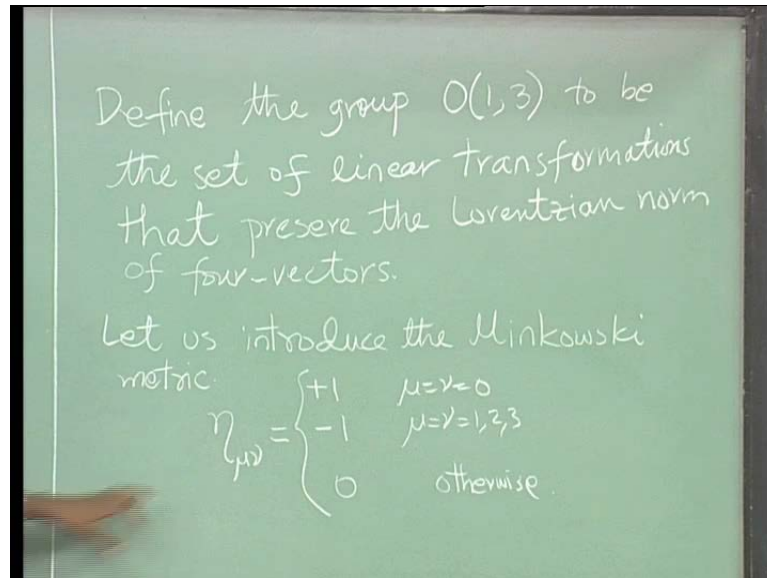 Define the group O(1,3) to be
the set of linear transformations
that presere the Lorentzian norm
of four-vectors.
Let us introduce the Minkowski
metric.
η_μν = { +1 μ=ν=0
-1 μ=ν=1,2,3
0 otherwise.